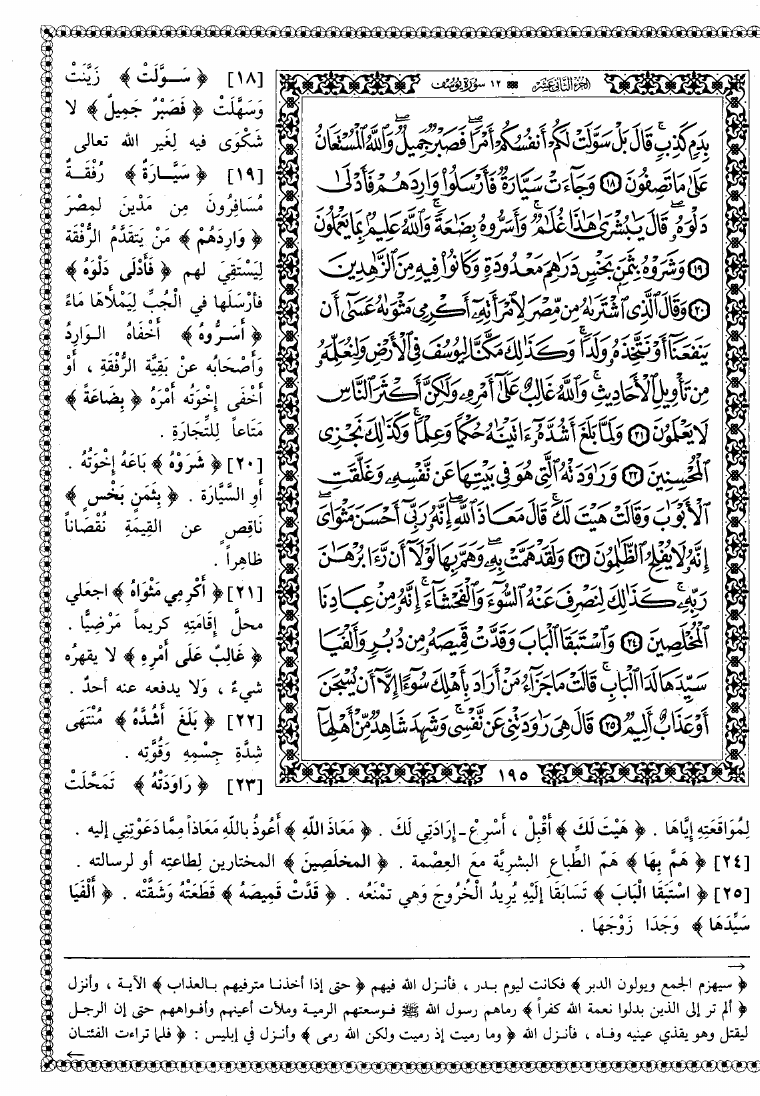 الجزء الثاني عشر ١٢ سورة يوسف
بِدَمٍ كَذِبٍ قَالَ بَلْ سَوَّلَتْ لَكُمْ أَنفُسُكُمْ أَمْرًا فَصَبْرٌ جَمِيلٌ وَاللَّهُ الْمُسْتَعَانُ
عَلَىٰ مَا تَصِفُونَ ١٨ وَجَاءَتْ سَيَّارَةٌ فَأَرْسَلُوا وَارِدَهُمْ فَأَدْلَىٰ
دَلْوَهُ قَالَ يَا بُشْرَىٰ هَٰذَا غُلَامٌ وَأَسَرُّوهُ بِضَاعَةً وَاللَّهُ عَلِيمٌ بِمَا يَعْمَلُونَ
١٩ وَشَرَوْهُ بِثَمَنٍ بَخْسٍ دَرَاهِمَ مَعْدُودَةٍ وَكَانُوا فِيهِ مِنَ الزَّاهِدِينَ
٢٠ وَقَالَ الَّذِي اشْتَرَاهُ مِن مِّصْرَ لِامْرَأَتِهِ أَكْرِمِي مَثْوَاهُ عَسَىٰ أَن
يَنفَعَنَا أَوْ نَتَّخِذَهُ وَلَدًا وَكَذَٰلِكَ مَكَّنَّا لِيُوسُفَ فِي الْأَرْضِ وَلِنُعَلِّمَهُ
مِن تَأْوِيلِ الْأَحَادِيثِ وَاللَّهُ غَالِبٌ عَلَىٰ أَمْرِهِ وَلَٰكِنَّ أَكْثَرَ النَّاسِ
لَا يَعْلَمُونَ ٢١ وَلَمَّا بَلَغَ أَشُدَّهُ ءَاتَيْنَاهُ حُكْمًا وَعِلْمًا وَكَذَٰلِكَ نَجْزِي
الْمُحْسِنِينَ ٢٢ وَرَاوَدَتْهُ الَّتِي هُوَ فِي بَيْتِهَا عَن نَّفْسِهِ وَغَلَّقَتِ
الْأَبْوَابَ وَقَالَتْ هَيْتَ لَكَ قَالَ مَعَاذَ اللَّهِ إِنَّهُ رَبِّي أَحْسَنَ مَثْوَايَ
إِنَّهُ لَا يُفْلِحُ الظَّالِمُونَ ٢٣ وَلَقَدْ هَمَّتْ بِهِ وَهَمَّ بِهَا لَوْلَا أَن رَّءَا بُرْهَانَ
رَبِّهِ كَذَٰلِكَ لِنَصْرِفَ عَنْهُ السُّوءَ وَالْفَحْشَاءَ إِنَّهُ مِنْ عِبَادِنَا
الْمُخْلَصِينَ ٢٤ وَاسْتَبَقَا الْبَابَ وَقَدَّتْ قَمِيصَهُ مِن دُبُرٍ وَأَلْفَيَا
سَيِّدَهَا لَدَا الْبَابِ قَالَتْ مَا جَزَاءُ مَنْ أَرَادَ بِأَهْلِكَ سُوءًا إِلَّا أَن يُسْجَنَ
أَوْ عَذَابٌ أَلِيمٌ ٢٥ قَالَ هِيَ رَاوَدَتْنِي عَن نَّفْسِي وَشَهِدَ شَاهِدٌ مِّنْ أَهْلِهَا
١٩٥
[١٨] ﴿ سَـوَّلَتْ ﴾ زَيَّنَتْ
وَسَهَّلَتْ ﴿ فَصَبْرٌ جَمِيلٌ ﴾ لا
شَكْوَى فيه لِغَير الله تعالى
[١٩] ﴿ سَيَّـارَةٌ ﴾ رُفْقَـةٌ
مُسَافِرُونَ مِن مَدْيَن لمِصْرَ
﴿ وَارِدَهُمْ ﴾ مَنْ يَتقدَّمُ الرُّفْقَة
لِيَسْتَقِيَ لهم ﴿ فَأَدْلَى دَلْوَهُ ﴾
فأرْسَلَها في الْجُبِّ لِيَمْلَأهَا مَاءً
﴿ أَسَرُّوهُ ﴾ أَخْفَاهُ الـوَارِدُ
وَأَصْحَابُه عنْ بَقِيَّة الرُّفْقَةِ ، أَوْ
أَخْفَى إِخْوَتُه أَمْرَهُ ﴿ بِضَاعَةً ﴾
مَتَاعاً لِلتِّجارَةِ .
[٢٠] ﴿ شَرَوْهُ ﴾ بَاعَهُ إِخْوَتُهُ .
أَو السَّيَّارَة . ﴿ بِثَمَنٍ بَخْسٍ ﴾
نَاقِصٍ عن القِيمَةِ نُقْصَاناً
ظاهِراً .
[٢١] ﴿ أَكْرِمِي مَثْوَاهُ ﴾ اجعلي
محلَّ إِقامَتِهِ كريماً مَرْضِيًّا .
﴿ غَالِبٌ عَلَى أَمْرِهِ ﴾ لا يقهرُه
شيءٌ ، وَلا يدفعه عنه أحدٌ .
[٢٢] ﴿ بَلَغَ أَشُدَّهُ ﴾ مُنْتَهَى
شِدَّةِ جِسْمِهِ وَقُوَّتِه .
[٢٣] ﴿ رَاوَدَتْهُ ﴾ تَمَحَّلَتْ
لِمُوَاقَعَتِهِ إِيَّاهَا . ﴿ هَيْتَ لَكَ ﴾ أَقْبِلْ ، أَسْرِعْ - إِرَادَتِي لَكَ . ﴿ مَعَاذَ اللَّهِ ﴾ أَعُوذُ بِاللَّهِ مَعَاذاً مِمَّا دَعَوْتِنِي إليه .
[٢٤] ﴿ هَمَّ بِهَا ﴾ هَمَّ الطِّباع البشريَّة معَ العِصْمة . ﴿ المخلَصِينَ ﴾ المختارين لِطاعتِه أو لرسالته .
[٢٥] ﴿ اسْتَبَقَا الْبَابَ ﴾ تَسَابَقَا إِلَيْهِ يُرِيدُ الْخُرُوجَ وَهي تَمْنَعُه . ﴿ قَدَّتْ قَمِيصَهُ ﴾ قَطَعَتْهُ وَشَقَّتْه . ﴿ أَلْفَيَا
سَيِّدَهَا ﴾ وَجَدَا زَوْجَهَا .
﴿ سيهزم الجمع ويولون الدبر ﴾ فكانت ليوم بـدر ، فأنـزل الله فيهم ﴿ حتى إذا أخذنـا مترفيهم بـالعذاب ﴾ الآيـة ، وأنزل
﴿ ألم تر إلى الذين بدلوا نعمة الله كفراً ﴾ رماهم رسول الله ﷺ فـوسعتهم الرميـة ومـلأت أعينهم وأفـواههم حتى إن الرجـل
ليقتل وهو يقذي عينيه وفـاه ، فأنـزل الله ﴿ وما رميت إذ رميت ولكن الله رمى ﴾ وأنـزل في إبليس : ﴿ فلما تراءت الفئتـان